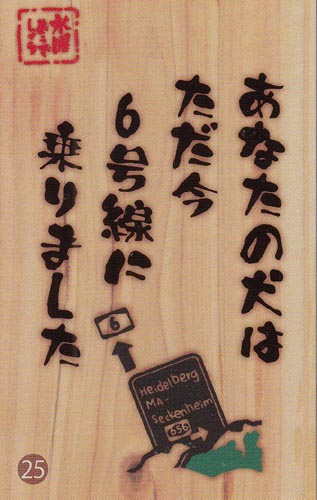 あなたの犬は
ただ今
6号線に
乗りました
6
Heidelberg
MA-
Seckenheim
656
25